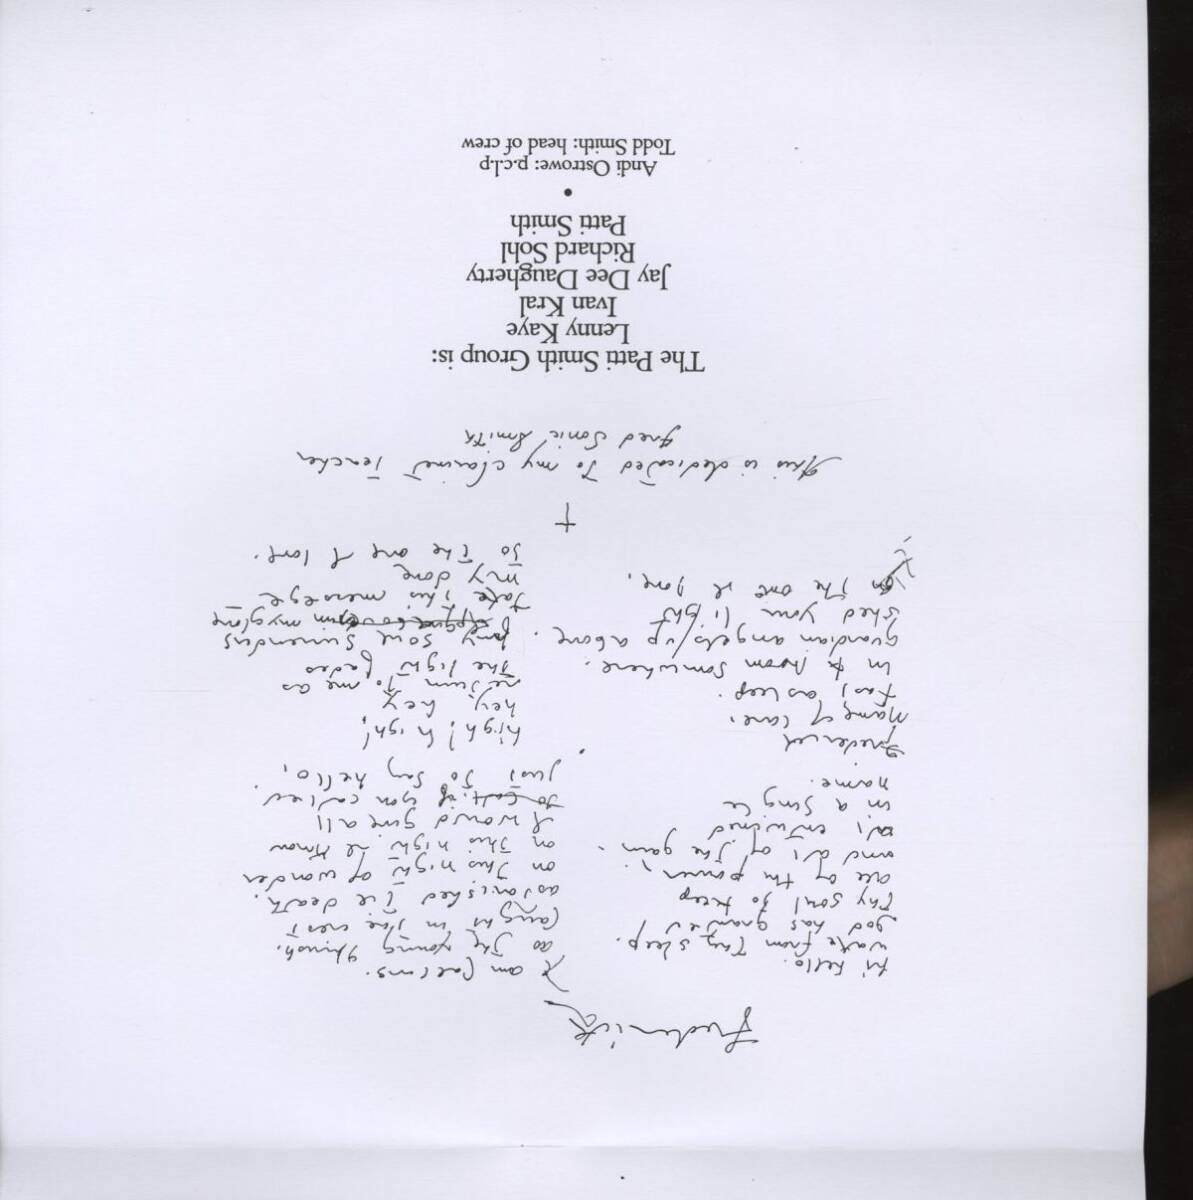 Frederick
hi hello.
wake from Thy sleep.
god has granted
Thy soul To keep
all of the power
and all of The gain.
all entwined
in a single
name.
Frederick
Name of care.
fast asleep.
in a room somwhere.
guardian angels/up above.
shed your light
on The one I love.
I am
as The young
caught in The
astished
on This night of wonder
on This night
I would give all
if you called
just To say hello,
high! high!
hey hey
return To me as
The light fades
my soul surrenders
in my glove
Take This message
my dove
To The one I love.
†
This is dedicated To my clarinet Teacher
Fred Sonic Smith
The Patti Smith Group is:
Lenny Kaye
Ivan Kral
Jay Dee Daugherty
Richard Sohl
Patti Smith
•
Andi Ostrowe: p.c.l.p
Todd Smith: head of crew